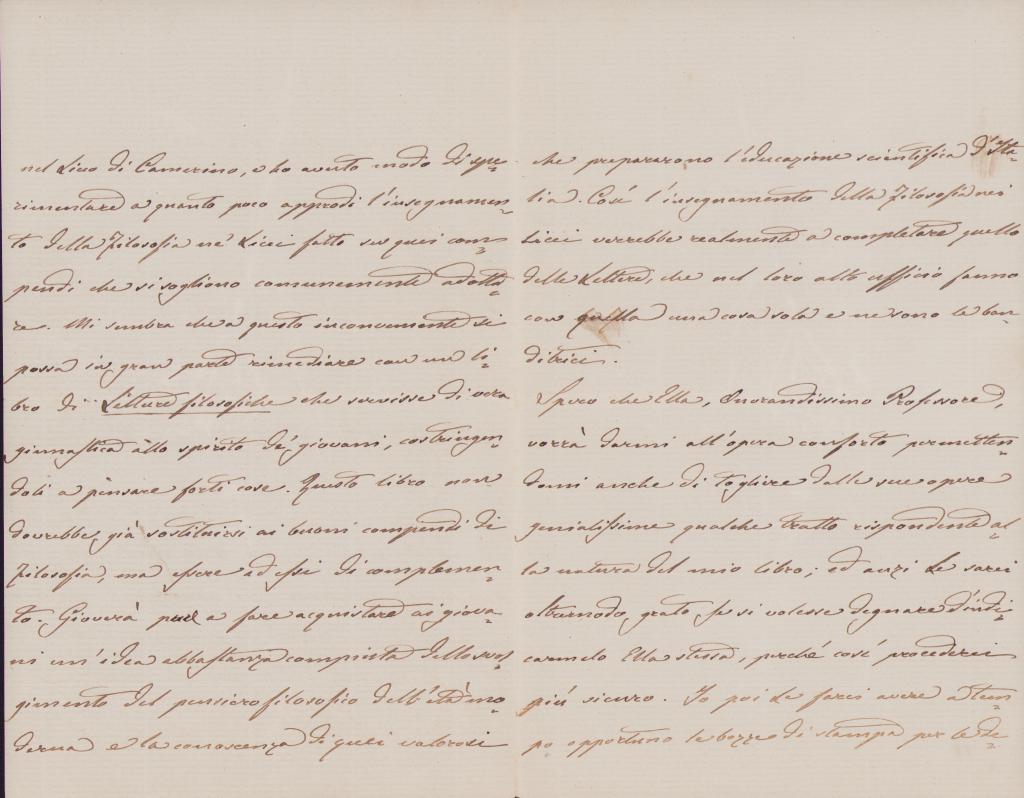 nel Liceo di Camerino, e ho avuto modo di spe-
rimentare a quanto poco approdi l'insegnamen-
to della Filosofia ne' Licei fatto su quei com-
pendi che si sogliono comunemente adotta-
re. Mi sembra che a questo inconveniente si
possa in gran parte rimediare con un li-
bro di Letture filosofiche che servisse di vera
ginnastica allo spirito de' giovani, costringen-
doli a pensare forti cose. Questo libro non
dovrebbe già sostituirsi ai buoni compendi di
Filosofia, ma essere ad essi di complemen-
to. Gioverà pure a fare acquistare ai giova-
ni un'idea abbastanza compiuta dello svol-
gimento del pensiero filosofico dell'età mo-
derna e la conoscenza di quei valorosi
che prepararono l'educazione scientifica d'Ita-
lia. Così l'insegnamento della Filosofia nei
Licei verrebbe realmente a completare quello
delle Lettere, che nel loro alto ufficio fanno
con quella una cosa sola e ne sono le ban-
ditrici.
Spero che Ella, Onorandissimo Professore,
vorrà darmi all'opera conforto permetten-
domi anche di togliere dalle sue opere
genialissime qualche tratto rispondente al-
la natura del mio libro; ed anzi Le sarei
oltremodo grato, se si volesse degnare d'indi-
carmelo Ella stessa, perché così procederei
più sicuro. Io poi Le farei avere a tem-
po opportuno le bozze di stampa per le de-